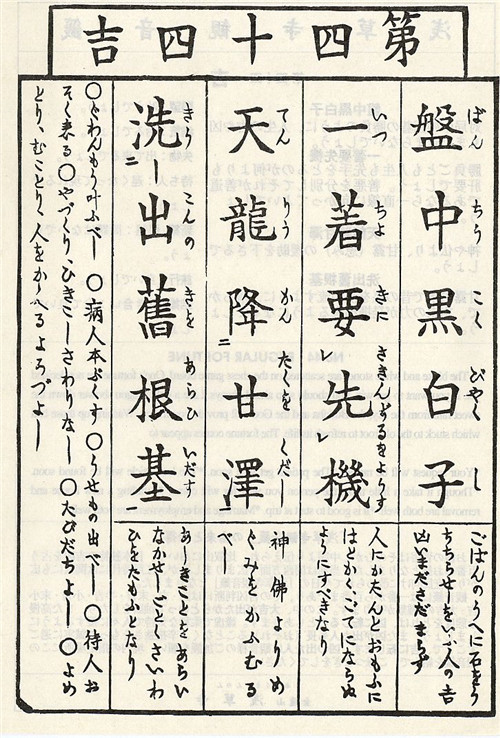 第四十四吉
盤中黒白子
ばん ちう こく びやく し
ごばんのうへに石をう
ちちらせしを、人の吉
凶いまださだまらず
一着要レ先レ機
いつ ちよ きに さきんずるをようす
人にかたんとおもふに
は
やうにすべきなり
天龍降二甘澤一
てん りう かん たくを くだし
神佛よりめ
ぐみをかふむる
べし
洗二出舊根基一
きう こんの きを あらひ いだす
あしきことをあらい
ながせしごとくさいわ
ひをたもふとなり
○ぐわんもう叶ふべし ○病人本ぶくす ○うせもの出べし ○待人お
そく来る ○やづくり、ひきこしさわりなし ○たびだちよし ○よめ
とり、むことり、人をかゝへるよろづよし